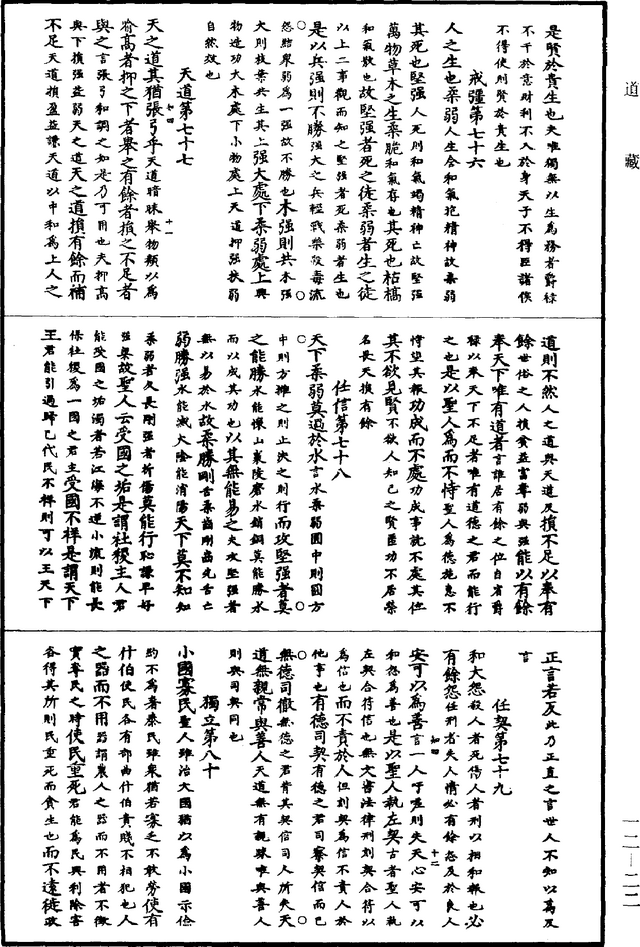 道藏
一二—二二
是賢於貴生也夫唯獨無以生為務者爵祿
不干於意財利不入於身天子不得臣諸侯
不得使則賢於貴生也
戒彊第七十六
人之生也柔弱人生含和氣抱精神故柔弱
其死也堅强人死則和氣竭精神亡故堅强
萬物草木之生柔脆和氣存也其死也枯槁
和氣散也故堅强者死之徒柔弱者生之徒
以上二事觀而知之堅强者死柔弱者生也
是以兵强則不勝强大之兵輕戰樂殺毒流
怨結衆弱為一强故不勝也木强則共木强
大則枝葉共生其上强大處下柔弱處上興
物造功大木處下小物處上天道抑强扶弱
自然效也
天道第七十七
天之道其猶張弓乎天道暗昧舉物類以為
喻高者抑之下者舉之有餘者損之不足者
與之言張弓和調之如是乃可用也夫抑高
舉下損强益弱天之道天之道損有餘而補
不足天道損盈益謙天道以中和為上人之
知四
十一
道則不然人之道與天道反損不足以奉有
餘世俗之人損貧益富奪弱與强能以有餘
奉天下唯有道者言誰居有餘之位自省爵
祿以奉天下不足者唯有道德之君而能行
之也是以聖人為而不恃聖人為德施恩不
恃望其報功成而不處功成事就不處其位
其不欲見賢不欲人知已之賢匿功不居榮
名畏天損有餘
任信第七十八
天下柔弱莫過於水言水柔弱圓中則圓方
中則方擁之則止決之則行而攻堅强者莫
之能勝水能懷山襄陵磨水銷銅莫能勝水
而以成其功也以其無能易之夫攻堅强者
無以易於水故柔勝剛舌柔齒剛齒先舌亡
弱勝强水能滅火陰能消陽天下莫不知知
柔弱者久長剛强者折傷莫能行恥謙卑好
强梁故聖人云受國之垢是謂社稷主人君
能受國之垢濁者若江海不逆小流則能長
保社稷為一國之君主受國不祥是謂天下
王君能引過歸已代民不祥則可以王天下
正言若反此乃正直之言世人不知以為反
言
任契第七十九
和大怨殺人者死傷人者刑以相和報也必
有餘怨任刑者失人情必有餘怨及於良人
安可以為善言一人吁嗟則失天心安可以
和怨為善也是以聖人執左契古者聖人執
左契合符信也無文書法律刑刻契合符以
為信也而不責於人但刻契為信不責人於
他事也有德司契有德之君司察契信而已
無德司徹無德之君背其契信司人所失天
道無親常與善人天道無有親踈唯與善人
則與司契同也
獨立第八十
小國寡民聖人雖治大國猶以為小國示儉
約不為奢泰民雖衆猶若寡乏不敢勞使有
什伯使民各有部曲什伯貴賤不相犯也人
之器而不用器謂農人之器而不用者不徵
實奪民之時使民重死君能為民興利除害
各得其所則民重死而貪生也而不遠徙政
知四
十二